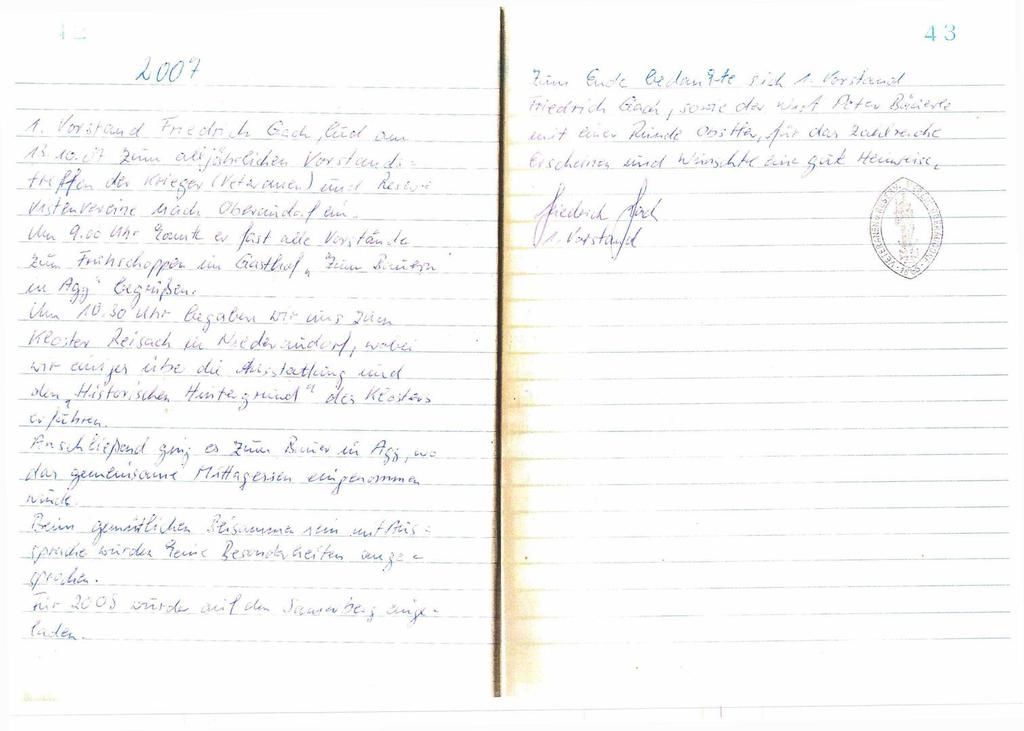 42
2007
1. Vorstand Friedrich Gach, lud am
13.10.07 zum alljährlichen Vorstands-
treffen der Krieger (Veteranen) und Reser-
vistenvereine nach Oberaudorf ein.
Um 9.00 Uhr konnte er fast alle Vorstände
zum Frühschoppen im Gasthof „Zum Bauern
in Agg" begrüßen.
Um 10.30 Uhr begaben wir uns zum
Kloster Reisach in Niederaudorf, wobei
wir einiges über die Ausstattung und
den „Historischen Hintergrund" des Klosters
erfuhren.
Anschließend ging es zum Bauer in Agg, wo
das gemeinsame Mittagessen eingenommen
wurde.
Beim gemütlichen Beisammen sein mit Aus-
sprache wurden keine Besonderheiten ange-
sprochen.
Für 2008 wurde auf den Samerberg einge-
laden.
43
Zum Ende bedankte sich 1. Vorstand
Friedrich Gach, sowie der Wirt Peter
mit einer Runde Obstler, für das Zahlreiche
Erscheinen und wünschte eine gute Heimreise.
Friedrich Gach
1. Vorstand